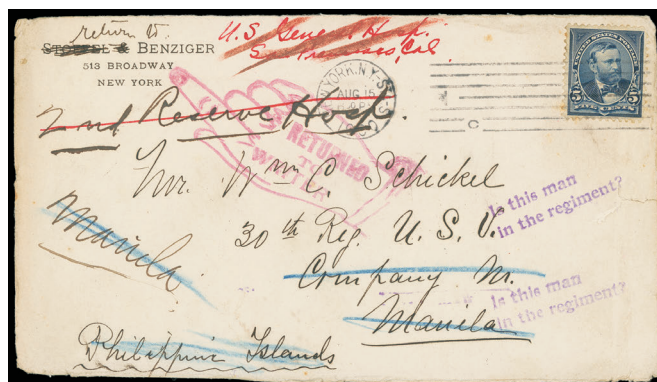 return to
& BENZIGER
513 BROADWAY
NEW YORK
U.S. General Hosp.
San Francisco, Cal.
NEW YORK, N.Y.
AUG 15
C
UNITED STATES POSTAGE
2nd Reserve Hosp.
RETURNED
TO
WRITER
Mr. Wm C. Schickel
30th Reg. U. S. V.
Company M.
Manila
Philippine Islands
Manila
Is this man
in the regiment?
Is this man
in the regiment?